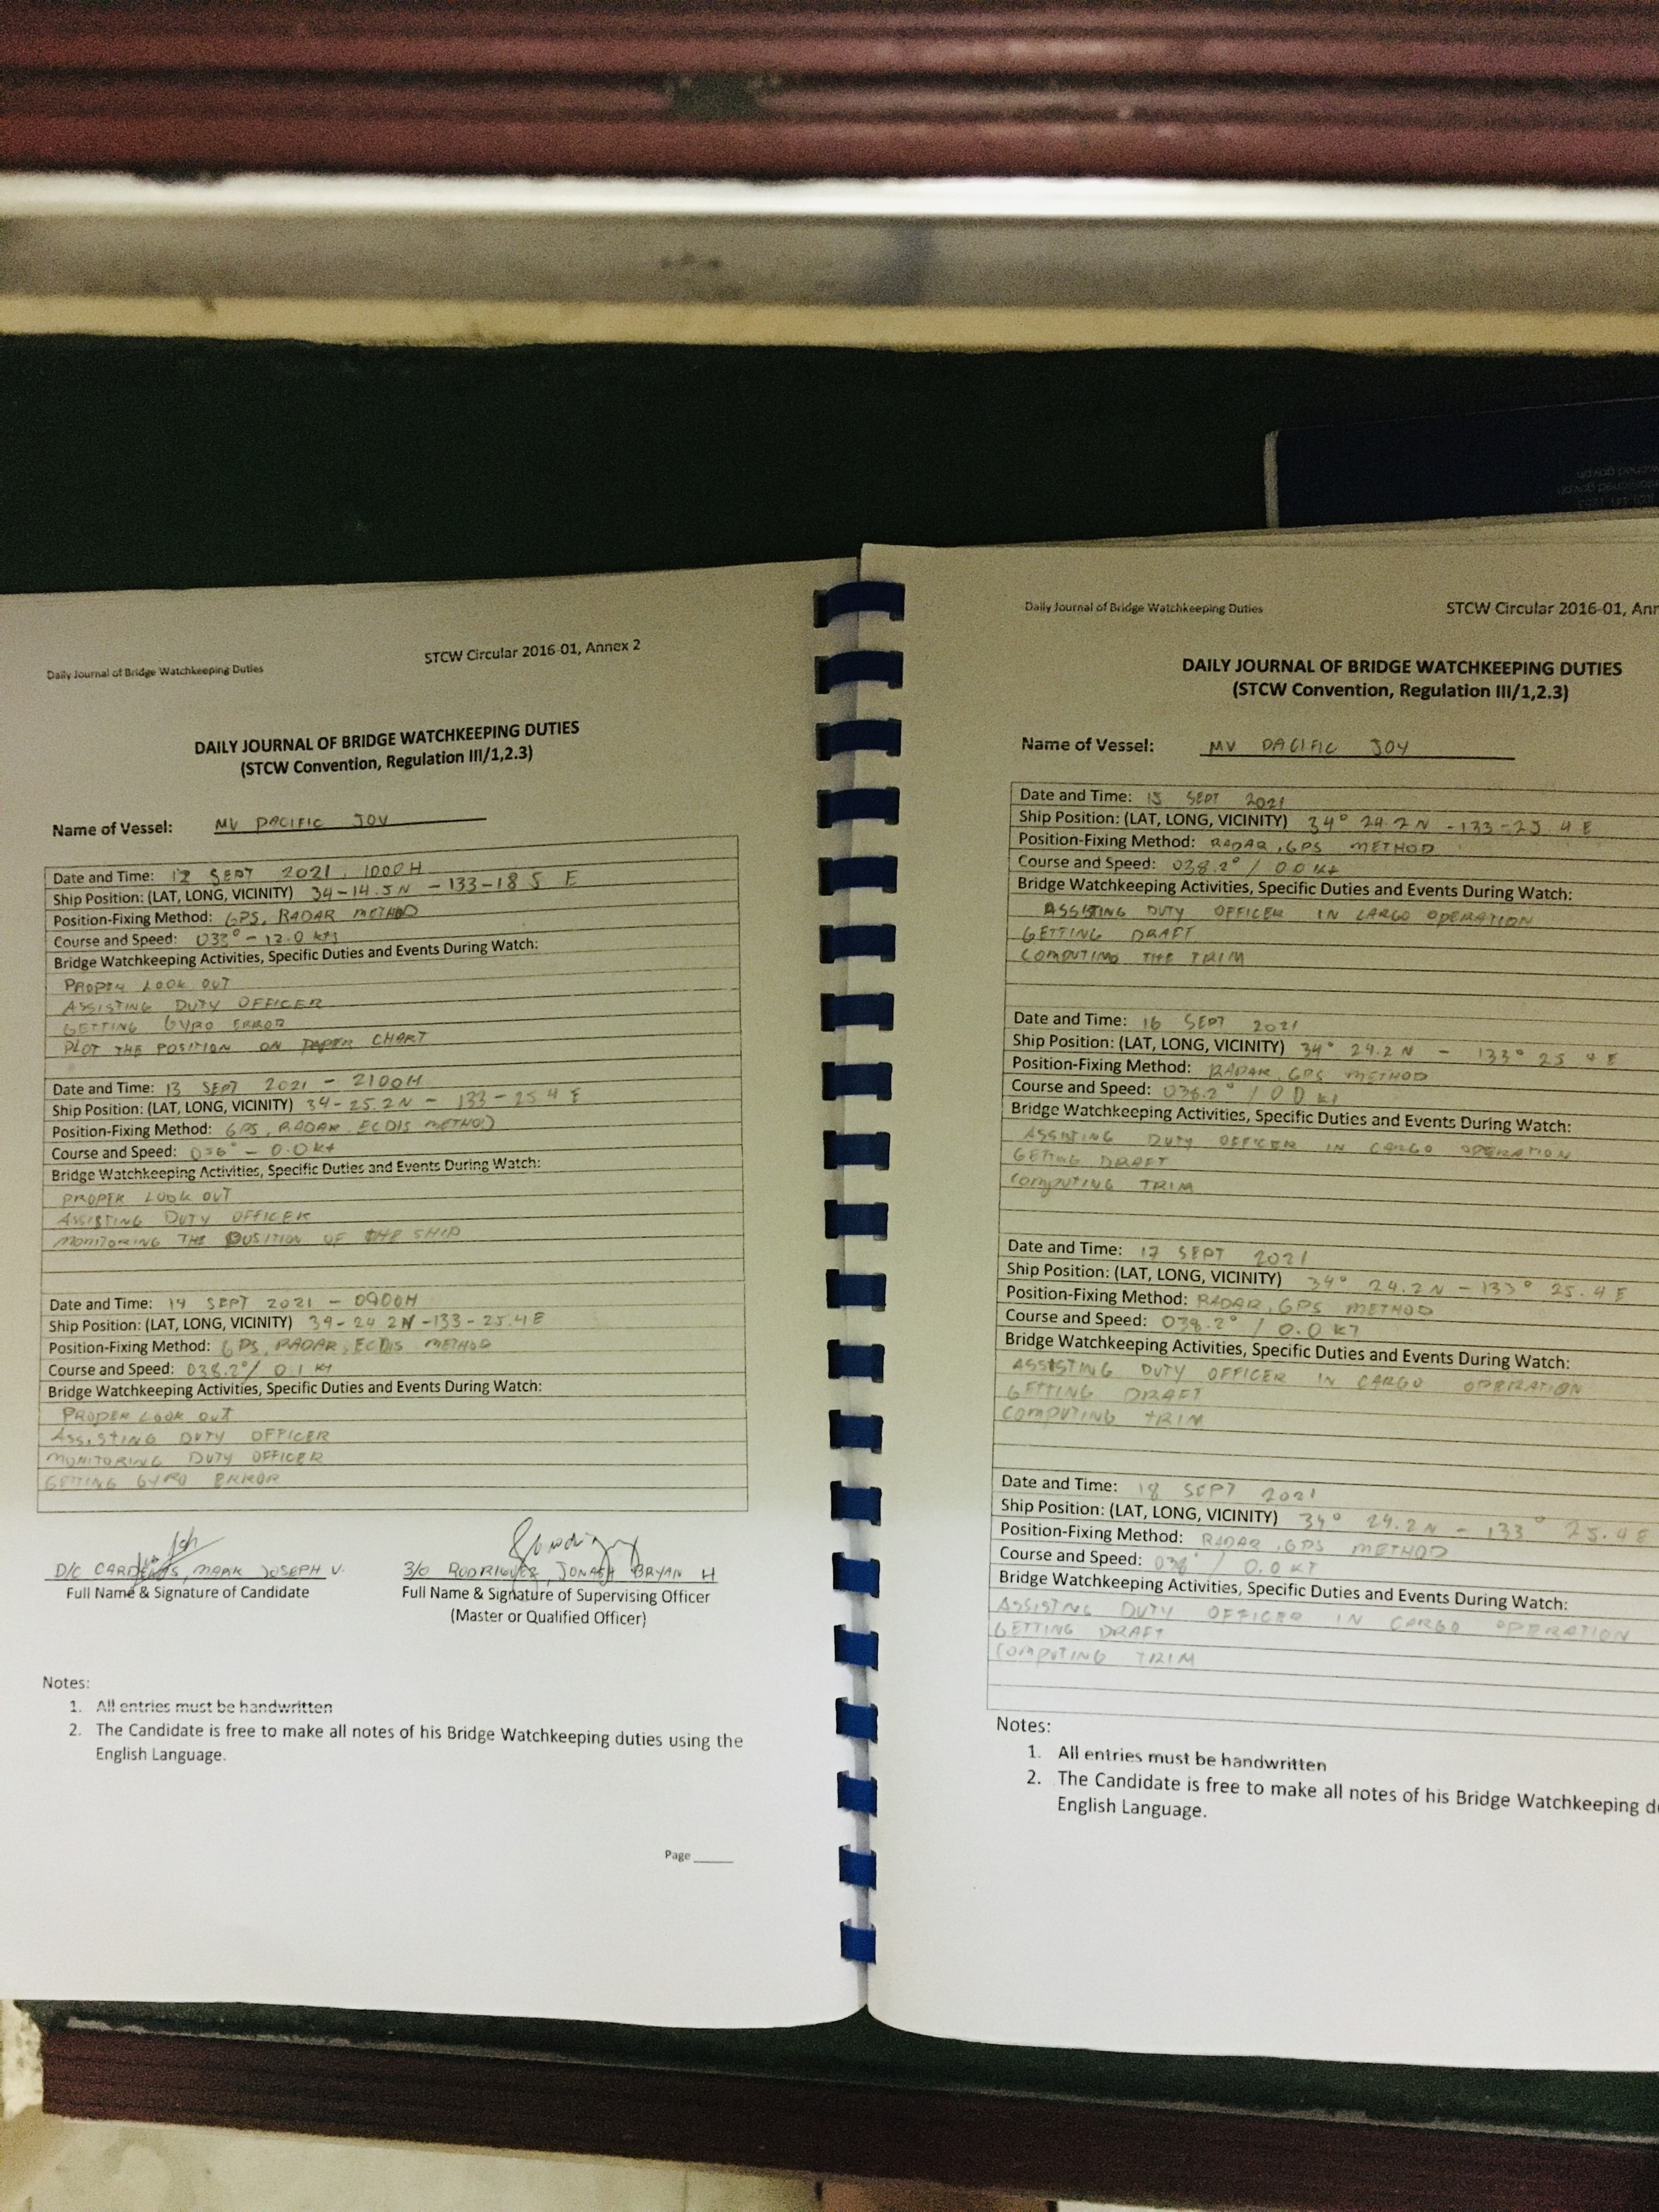 Daily Journal of Bridge Watchkeeping Duties
STCW Circular 2016-01, Annex 2
DAILY JOURNAL OF BRIDGE WATCHKEEPING DUTIES
(STCW Convention, Regulation III/1,2.3)
Name of Vessel: MV PACIFIC JOY
Date and Time: 12 SEPT 2021, 1000H
Ship Position: (LAT, LONG, VICINITY) 34-14.5N - 133-18 5 E
Position-Fixing Method: GPS, RADAR METHOD
Course and Speed: 033° - 12.0 kts
Bridge Watchkeeping Activities, Specific Duties and Events During Watch:
PROPER LOOK OUT
ASSISTING DUTY OFFICER
GETTING GYRO ERROR
PLOT THE POSITION ON PAPER CHART
Date and Time: 13 SEPT 2021 - 2100H
Ship Position: (LAT, LONG, VICINITY) 34-25.2N - 133-25 4 E
Position-Fixing Method: GPS, RADAR, ECDIS METHOD
Course and Speed: - 0.0 kt
Bridge Watchkeeping Activities, Specific Duties and Events During Watch:
PROPER LOOK OUT
ASSISTING DUTY OFFICER
MONITORING THE POSITION OF THE SHIP
Date and Time: 14 SEPT 2021 - 0900H
Ship Position: (LAT, LONG, VICINITY) 34-24 2N -133-25.4E
Position-Fixing Method: GPS, RADAR, ECDIS METHOD
Course and Speed: 038.2°/ 0.1 KT
Bridge Watchkeeping Activities, Specific Duties and Events During Watch:
PROPER LOOK OUT
ASSISTING DUTY OFFICER
MONITORING DUTY OFFICER
GETTING GYRO ERROR
D/C MARK JOSEPH V.
3/O RODRIGUEZ, JONASH BRYAN H
Full Name & Signature of Candidate
Full Name & Signature of Supervising Officer
(Master or Qualified Officer)
Notes:
1. All entries must be handwritten
2. The Candidate is free to make all notes of his Bridge Watchkeeping duties using the
English Language.
Page
Daily Journal of Bridge Watchkeeping Duties
STCW Circular 2016-01, Ann
DAILY JOURNAL OF BRIDGE WATCHKEEPING DUTIES
(STCW Convention, Regulation III/1,2.3)
Name of Vessel: MV PACIFIC JOY
Date and Time: 15 SEPT 2021
Ship Position: (LAT, LONG, VICINITY) 34° 24.2 N -133-25.4 E
Position-Fixing Method: RADAR, GPS METHOD
Course and Speed: 038.2° / 0.0 kt
Bridge Watchkeeping Activities, Specific Duties and Events During Watch:
ASSISTING DUTY OFFICER IN CARGO OPERATION
GETTING DRAFT
COMPUTING THE TRIM
Date and Time: 16 SEPT 2021
Ship Position: (LAT, LONG, VICINITY) 34° 24.2 N - 133° 25 4 E
Position-Fixing Method: RADAR, GPS METHOD
Course and Speed: 038.2° / 0 0 kt
Bridge Watchkeeping Activities, Specific Duties and Events During Watch:
ASSISTING DUTY OFFICER IN CARGO OPERATION
GETTING DRAFT
COMPUTING TRIM
Date and Time: 17 SEPT 2021
Ship Position: (LAT, LONG, VICINITY) 34° 24.2 N - 133° 25.4 E
Position-Fixing Method: RADAR, GPS METHOD
Course and Speed: 038.2° / 0.0 KT
Bridge Watchkeeping Activities, Specific Duties and Events During Watch:
ASSISTING DUTY OFFICER IN CARGO OPERATION
GETTING DRAFT
COMPUTING TRIM
Date and Time: 18 SEPT 2021
Ship Position: (LAT, LONG, VICINITY) 34° 24.2 N - 133° 25.4 E
Position-Fixing Method: RADAR, GPS METHOD
Course and Speed: 038° / 0.0 KT
Bridge Watchkeeping Activities, Specific Duties and Events During Watch:
ASSISTNG DUTY OFFICER IN CARGO OPERATION
GETTING DRAFT
COMPUTING TRIM
Notes:
1. All entries must be handwritten
2. The Candidate is free to make all notes of his Bridge Watchkeeping d
English Language.